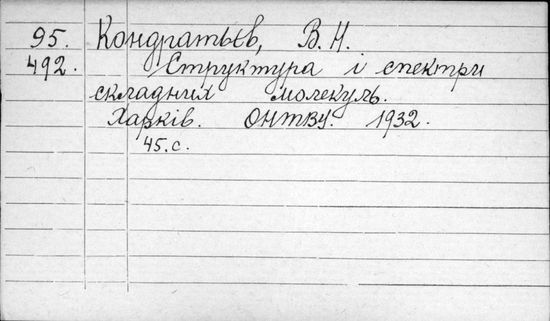 95. Кондратьєв, В. Н.
492. Структура і спектри
складних молекуль.
Харків. ОНТВУ. 1932.
45. с.